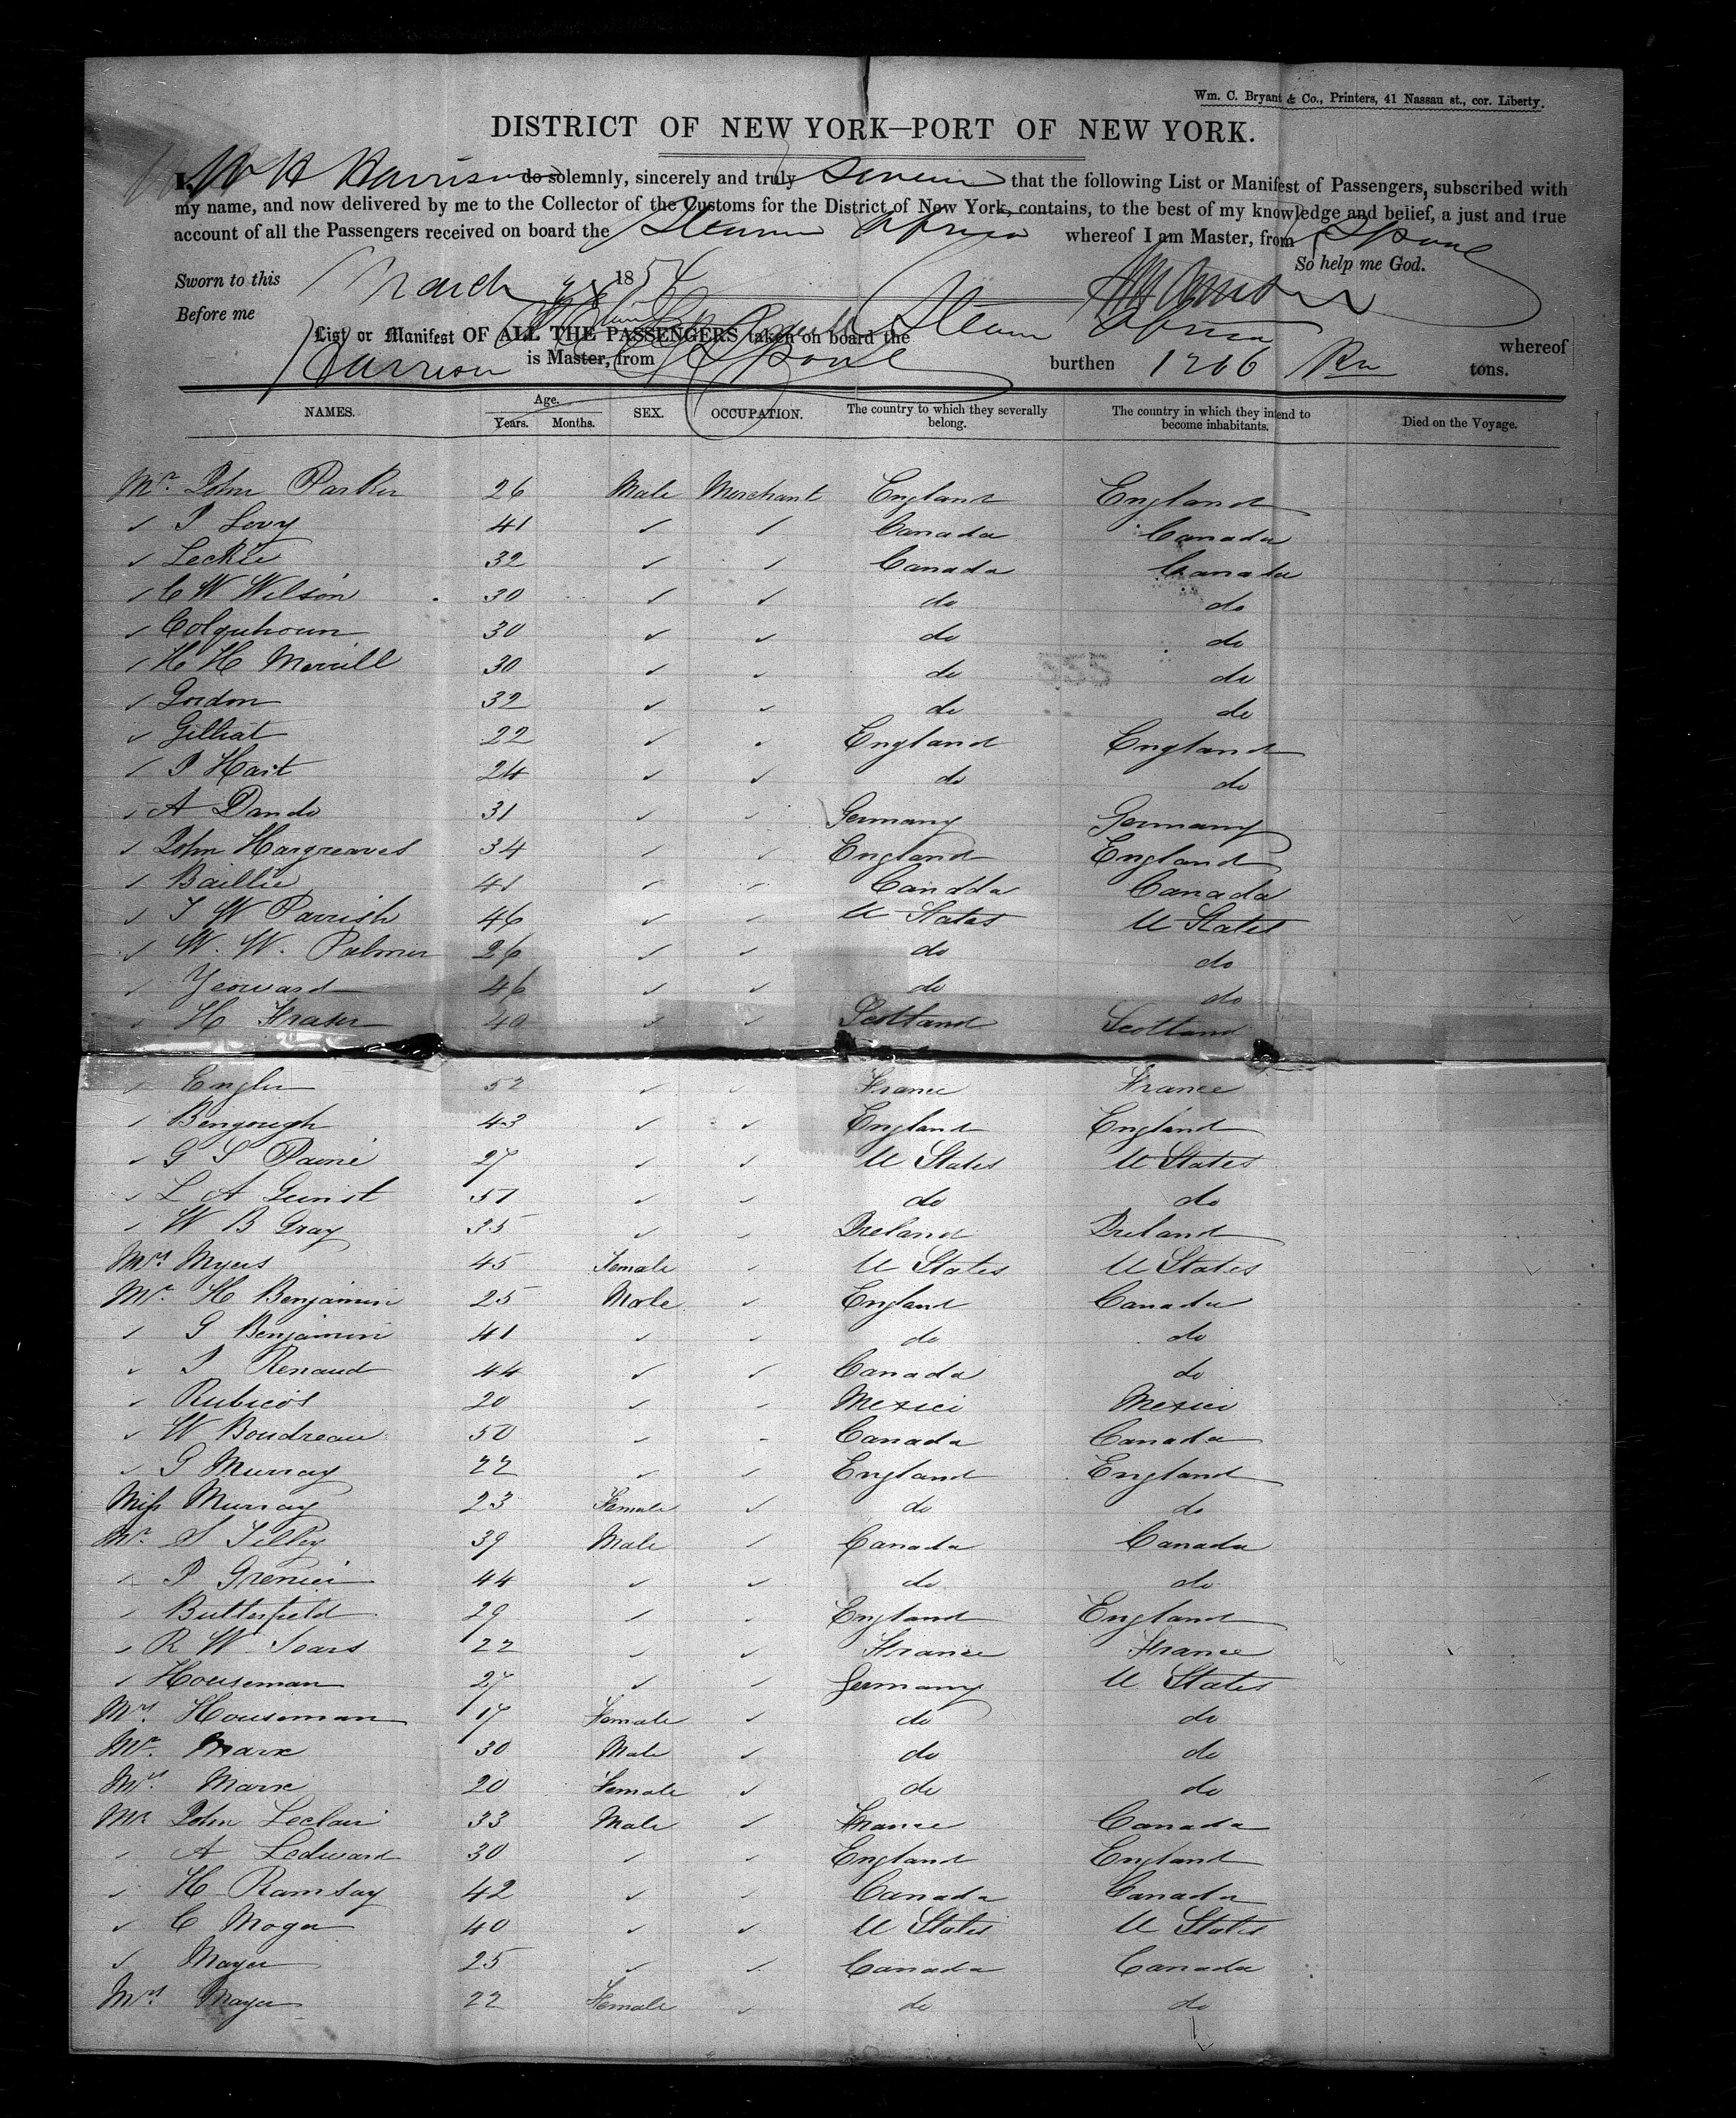 Wm. C. Bryant & Co., Printers, 41 Nassau st., cor. Liberty.
DISTRICT OF NEW YORK—PORT OF NEW YORK.
I, W H Harrison do solemnly, sincerely and truly that the following List or Manifest of Passengers, subscribed with
my name, and now delivered by me to the Collector of the Customs for the District of New York, contains, to the best of my knowledge and belief, a just and true
account of all the Passengers received on board the Steamer Africa whereof I am Master, from LPoole
So help me God.
Sworn to this March 1854
Before me
List or Manifest OF ALL THE PASSENGERS taken on board the Steamer Africa whereof
Harrison is Master, from LPoole burthen 1266 tons.
NAMES. Age. Years. Months. SEX. OCCUPATION. The country to which they severally belong. The country in which they intend to become inhabitants. Died on the Voyage.
Mr. John Parker 26 Male Merchant England England
✓ J Levy 41 ✓ ✓ Canada Canada
✓ Leckie 32 ✓ ✓ Canada Canada
✓ C W Wilson 30 ✓ ✓ do do
✓ Colquhoun 30 ✓ ✓ do do
✓ H H Merrill 30 ✓ ✓ do do
✓ Gordon 32 ✓ ✓ do do
✓ Gilliat 22 ✓ ✓ England England
✓ J Hart 24 ✓ ✓ do do
✓ A Dando 31 ✓ ✓ Germany Germany
✓ John Hargreaves 34 ✓ ✓ England England
✓ Baillie 41 ✓ ✓ Canada Canada
✓ J W Parrish 46 ✓ ✓ U States U States
✓ W. W. Palmer 26 ✓ ✓ do do
✓ Yeoward 46 ✓ ✓ do do
✓ H Fraser 40 ✓ ✓ Scotland Scotland
✓ Engler 52 ✓ ✓ France France
✓ Bengough 43 ✓ ✓ England England
✓ G S Paine 27 ✓ ✓ U States U States
✓ L A Gunst ✓ ✓ do do
✓ W B Gray 35 ✓ ✓ Ireland Ireland
Mrs. Myers 45 Female ✓ U States U States
Mr. H Benjamin 25 Male ✓ England Canada
✓ G Benjamin 41 ✓ ✓ do do
✓ J Renaud 44 ✓ ✓ Canada do
✓ Rubicos 20 ✓ ✓ Mexico Mexico
✓ W Boudreau 50 ✓ ✓ Canada Canada
✓ G Murray 22 ✓ ✓ England England
Miss Murray 23 Female ✓ do do
Mr. S Tilley 39 Male ✓ Canada Canada
✓ P Grenier 44 ✓ ✓ do do
✓ Butterfield 29 ✓ ✓ England England
✓ R W Sears 22 ✓ ✓ France France
✓ Houseman 27 ✓ ✓ Germany U States
Mrs. Houseman 17 Female ✓ do do
Mr. Marx 30 Male ✓ do do
Mrs. Marx 20 Female ✓ do do
Mr John Leclair 33 Male ✓ France Canada
✓ A Ledward 30 ✓ ✓ England England
✓ H Ramsay 42 ✓ ✓ Canada Canada
✓ C Moger 40 ✓ ✓ U States U States
✓ Mayer 25 ✓ ✓ Canada Canada
Mrs. Mayer 22 Female ✓ do do